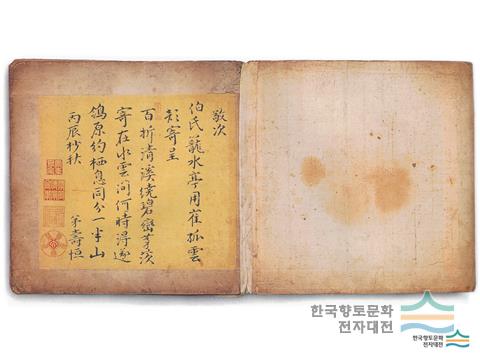 敬次
伯氏籠水亭用崔孤雲
韵寄呈
百折淸溪繞碧巒茅茨
寄在水雲間何時得遂
鴒原約栖息同分一半山
丙辰杪秋
弟壽恒
한국향토문화
전자대전
한국향토문화
전자대전